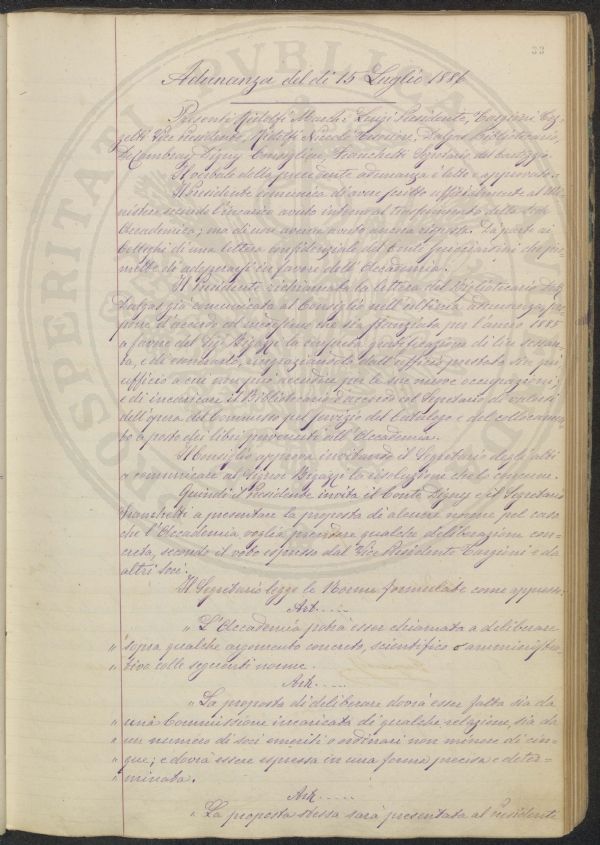 33
Adunanza del dì 15 Luglio 1886
Presenti Ridolfi March. Luigi Presidente,
Vice Presidente, Ridolfi Niccolò Dalgas Bibliotecario,
De Cambray Digny Consigliere, Franchetti Segretario
Il verbale della precedente adunanza è letto e approvato.
Il Presidente comunica di avere scritto ufficialmente al Mi-
nistero secondo l'incarico avuto intorno al della
Accademico; ma di non avere avuto ancora risposta. Dà parte ai
Colleghi di una lettera confidenziale del Conte Guicciardini che pro-
mette di adoperarsi in favore dell'Accademia.
Il Presidente richiamata la lettera del Bibliotecario
Dalgas già comunicata al Consiglio nell'ultima adunanza, pro-
pone d'accordo col medesimo che sia stanziata per l'anno 1885
a favore del Sig. Bigazzi la consueta gratificazione di lire sessan-
ta, e di esonerarlo, ringraziandolo dall'ufficio prestato sin qui
ufficio a cui non può accudire per le sue nuove occupazioni,
e di incaricare il Bibliotecario d'accordo col Segretario di valersi
dell'opera del Commesso pel servizio del Catalogo e del collocamen-
to a posto dei libri pervenuti all'Accademia.
Il Consiglio approva invitando il Segretario degli atti
a comunicare al Signor Bigazzi la risoluzione che lo concerne.
Quindi il Presidente invita il Conte Digny e il Segretario
Franchetti a presentare la proposta di alcune norme pel caso
che l'Accademia voglia prendere qualche deliberazione con-
creta, secondo il voto espresso dal Vice Presidente e da
altri soci.
Il Segretario legge le Norme formulate come appresso:
Art. ....
„ L'Accademia potrà esser chiamata a deliberare
„ sopra qualche argomento concreto, scientifico o amministra-
„ tivo colle seguenti norme.
Art. ....
„ La proposta di deliberare dovrà esser fatta sia da
„ una Commissione incaricata di qualche relazione, sia da
„ un numero di soci emeriti o ordinari non minore di cin-
„ que; e dovrà essere espressa in una forma precisa e deter-
„ minata.
Art. ....
„ La proposta stessa sarà presentata al Presidente